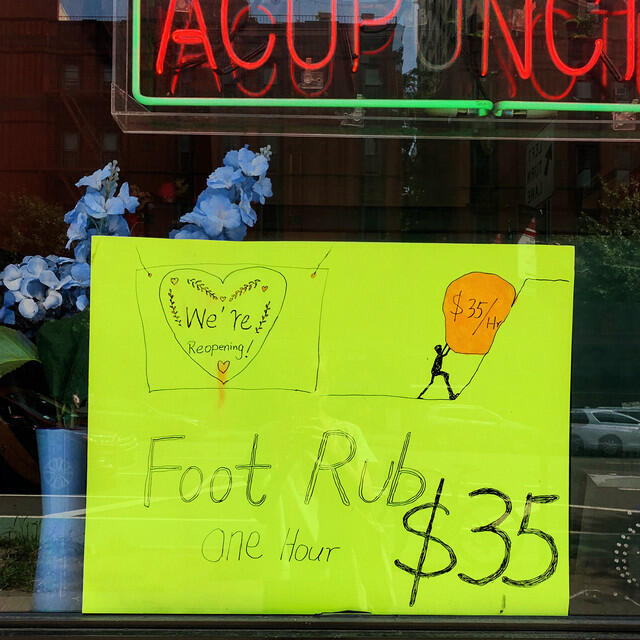 ACUPUNC
We're
Reopening!
$35/Hr
Foot Rub
One Hour
$35